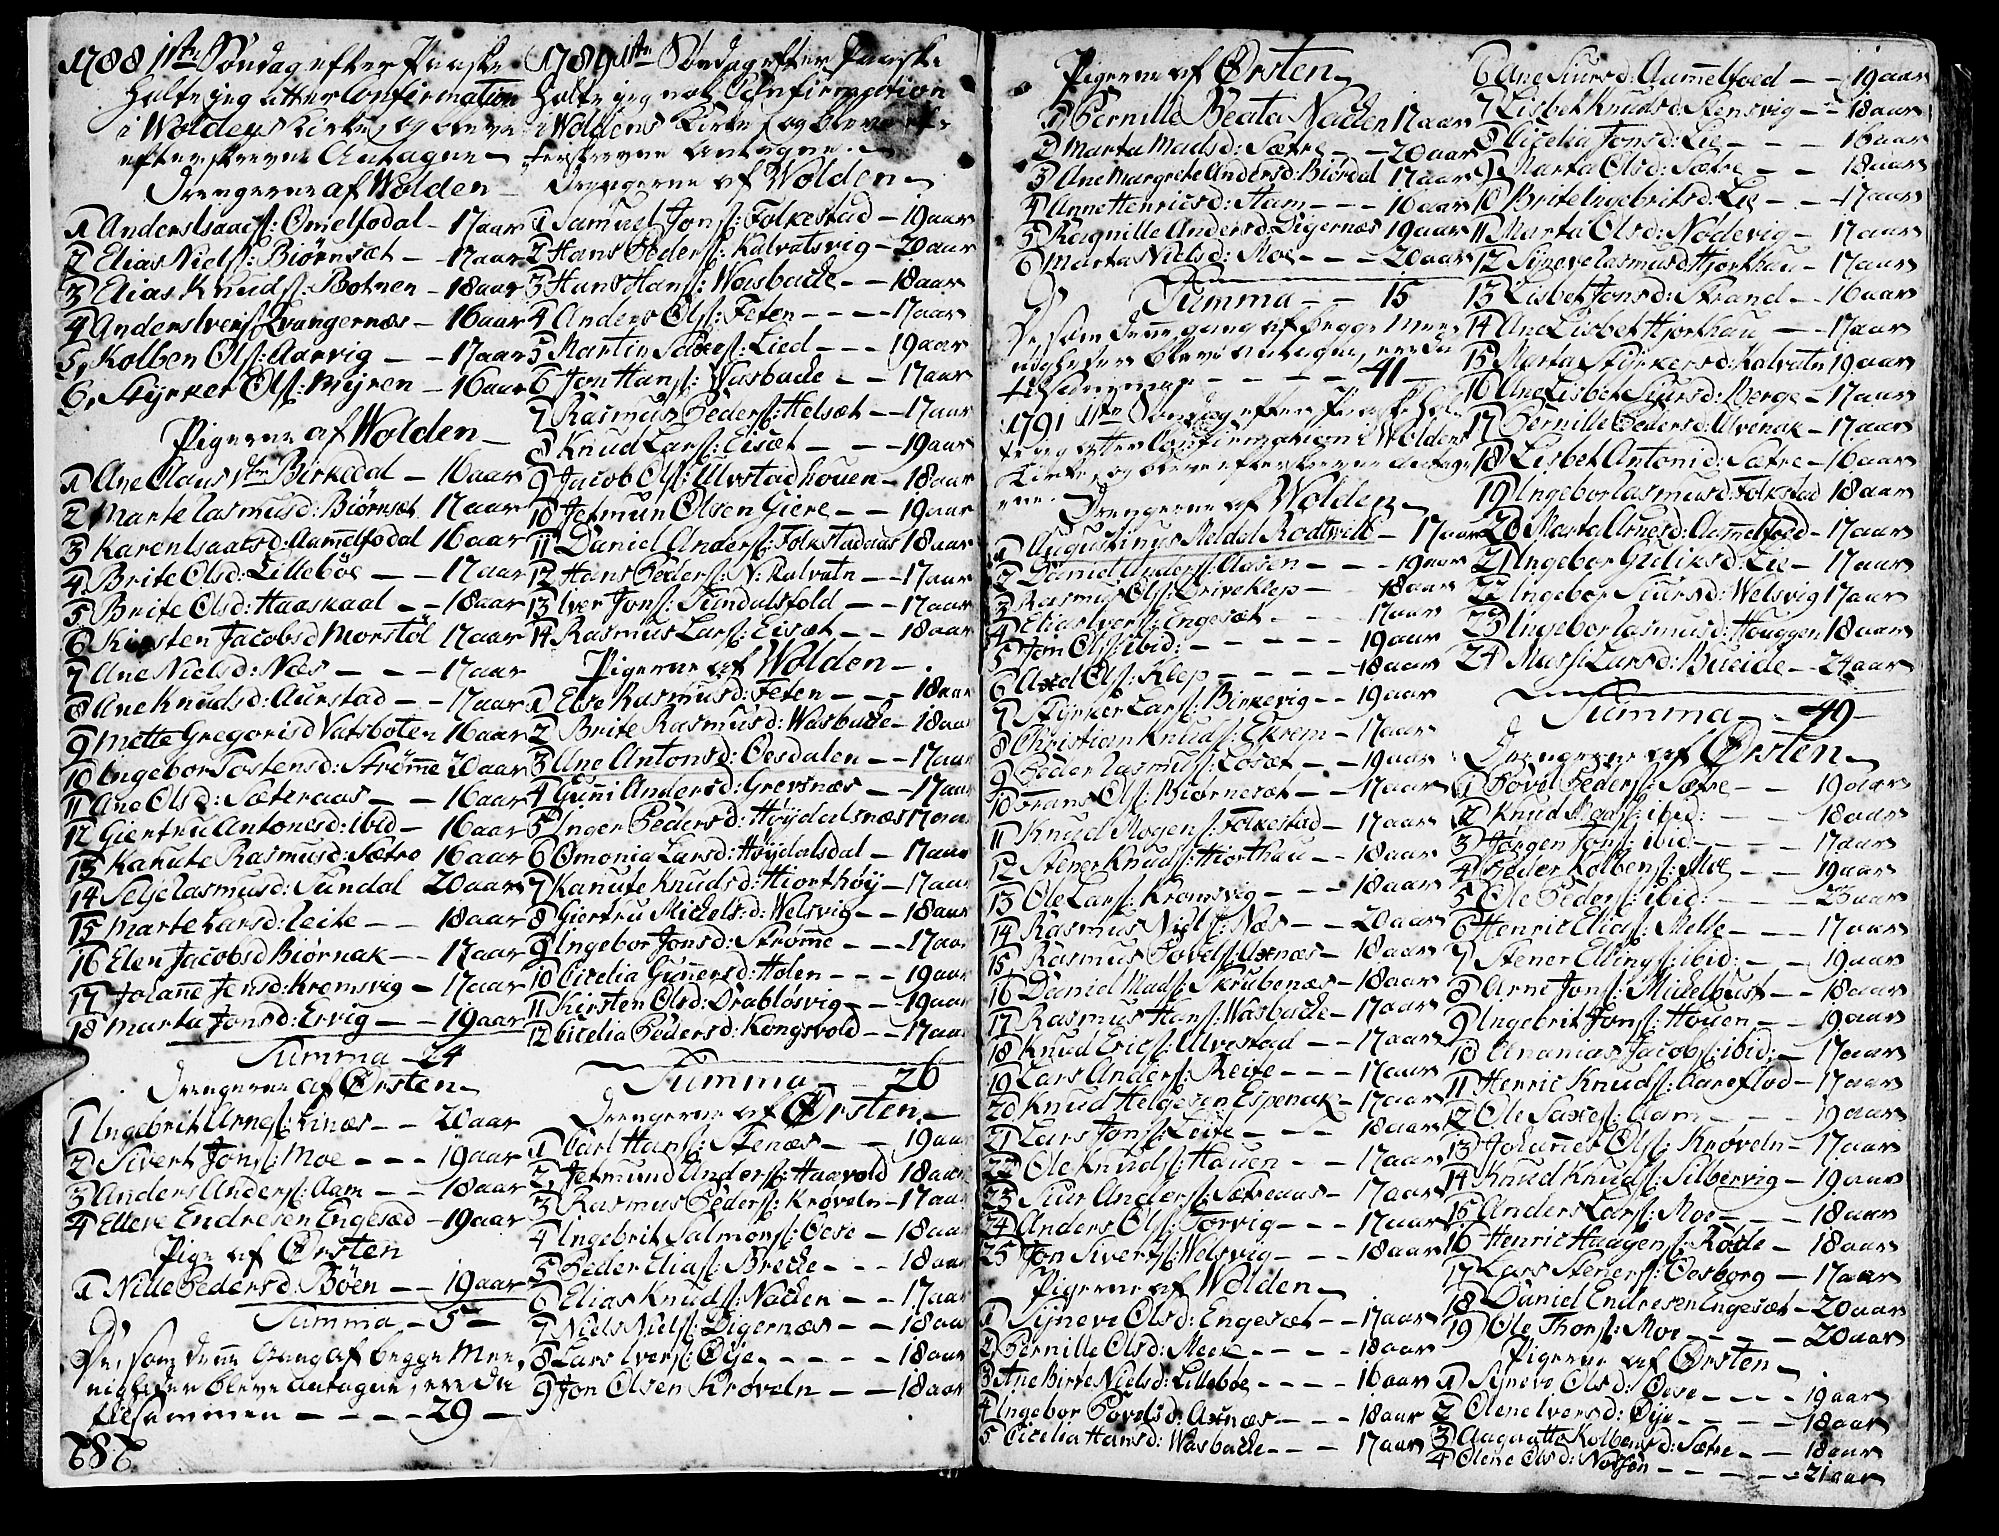 1788 1ste Søndag efter Paaske
holte jeg atter Confirmation
i Woldens Kirke, og bleve
efterskrevne Antagne
Drengerne af Wolden
1 Anders Isaacs: Omelfodal - 17 aar
2 Elias Niels: Biørnset - 17 aar
3 Elias Knuds: Botnen - 18 aar
4 Anders Ivers: Qvangernæs - 16 aar
5, Kolben Ols: Aarvig - 17 aar
6, Styrker Ols: Myren - 16 aar
Pigerne af Wolden
1 Ane Claus dtr Birkedal - 16 aar
2 Marte Rasmusd: Biørnset 17 aar
3 Karen Isaacsd: Aamelfodal 16 aar
4 Brite Olsd: Lillebøe - 17 aar
5 Brite Olsd: Haaskaal - 18 aar
6 Kirsten Jacobsd Morstøl 17 aar
7 Ane Nielsd: Næs - - - 17 aar
8 Ane Knudsd: Aurstad - - 17 aar
9 Mette Gregorisd Vatsboten 16 aar
10 Ingebor Tostensd: Strømme 20 aar
11 Ane Olsd: Sæteraas - - 16 aar
12 Giertru Antonesd: ibid - 16 aar
13 Kanute Rasmusd: Sætre 16 aar
14 Selje Rasmusd: Sundal 20 aar
15 Marte Larsd: Leite - - 18 aar
16 Elen Jacobsd Biørnak - - 17 aar
17 Johanne Jensd: Kromsvig - 17 aar
18 Marta Jonsd: Ervig - - 19 aar
Summa - 24
Drengerne af Ørsten
1 Ingebrit Arnes: Linæs - - 20 aar
2 Sivert Jons: Moe - - - 19 aar
3 Anders Anders: Aam - - 18 aar
4 Elleve Endresen Engesæd - 19 aar
Pige af Ørsten
1 Nille Pedersd Bøen - - 19 aar
Summa - 5 -
De, som denne Gang af begge Mee,
nigheder bleve antagne, ere da
tilsammen - - - - 29 -
1789 1ste Søndag efter Paaske
holte jeg nok Confirmation
i Woldens Kirke, og bleve ef-
terskrevne Antagne.
Drengerne af Wolden
1 Samuel Jons: Folkestad - 19 aar
2 Hans Peders: Kalvatsvig - 20 aar
3 Hans Hans: Wasbacke - - 18 aar
4 Anders Ols: Feten - - - 17 aar
5 Martin Saxes: Lied - - - 19 aar
6 Jon Hans: Wasbacke - - 17 aar
7 Rasmus Peders: Helsæt - - 17 aar
8 Knud Lars: Eisæt - - - 19 aar
9 Jacob Ols: Ulvstadhouen - 18 aar
10 Jetmun Olsen Giere - - 19 aar
11 Daniel Anders: Folkstadaas 18 aar
12 Hans Peders: N: Kalvatn - - 17 aar
13 Iver Jons: Sundalsfold - - 17 aar
14 Rasmus Lars: Eisæt - - 18 aar
Pigerne af Wolden
1 Else Rasmusd: Feten - - - 18 aar
2 Brite Rasmusd: Wasbacke - 18 aar
3 Ane Antonsd: Oesdalen - - 17 aar
4 Guni Andersd: Grevsnæs - - 17 aar
5 Inger Pedersd: Høydalsnæs 17 aar
6 Omonia Larsd: Høydalsdal - 17 aar
7 Kanute Knudsd: Hiorthøy - 17 aar
8 Giertru Mickelsd: Welsvig - - 18 aar
9 Ingebor Jonsd: Strømme - - - 17 aar
10 Cicelia Gunnersd: Holen - - - 19 aar
11 Kirsten Olsd: Drabløsvig - - 19 aar
12 Cicelia Pedersd: Kongsvold - - 17 aar
Summa - - 26
Drengerne af Ørsten
1 Carl Hans: Stenæs - - - 19 aar
2, Jetmund Anders: Haavold 18 aar
3 Rasmus Peders: Krøveln - 17 aar
4 Ingebrit Salmons: Oese - 18 aar
5 Peder Elias: Brecke - - - 18 aar
6 Elias Knuds: Nacken - - 17 aar
7 Niels Niels: Digernæs - - 18 aar
8 Lars Ivers: Øye - - - - - 18 aar
9 Jon Olsen Krøveln - - 18 aar
Pigerne af Ørsten
1 Pernille Beata Nacken 17 aar
2 Marta Madsd: Sætre - - 20 aar
3 Ane Margrete Andersd: Biørdal 17 aar
4 Anne Henricsd: Aam - - - 16 aar
5 Ragnille Andersd Digernæs 19 aar
6 Marta Nielsd: Moe - - - 20 aar
Summa - - 15
De som denne gang af begge Mee-
nigheder bleve antagne, ere da
tilsammen - - - - - 41 -
1791 1ste Søndag efter Paaske hol-
te jeg atter Confirmation i Woldens
Kirke, og bleve efterskrevne antag-
ne.
Drengerne af Wolden
1 Augustinus Meldal Rodtwelt - 17 aar
2 Daniel Anders: Aasen - - - - 19 aar
3 Rasmus Ols: Driveklep - - 18 aar
4 Elias Ivers: Engesæt - - - - 17 aar
5 Jon Ols: ibid: - - - - - - 19 aar
6 Axel Ols: Klep - - - - - 18 aar
7 Styrker Lars: Birkevig - - 19 aar
8 Christian Knuds: Ekrem - 17 aar
9 Peder Rasmus: Losæt - - - 19 aar
10 Frans Ols: Biørneset - - - 17 aar
11 Knud Mogens: Folkestad - 17 aar
12 Stener Knuds: Hiorthau - - 18 aar
13 Ole Lars: Kromsvig - - - 18 aar
14 Rasmus Niels: Næs - - 20 aar
15 Rasmus Povels: Axnæs - 18 aar
16 Daniel Mads: Skrubenæs - 18 aar
17 Rasmus Hans: Wasbacke - 17 aar
18 Knud Erics: Ulvestad - - 17 aar
19 Lars Anders: Reite - - - 17 aar
20 Knud Helgesen Espenak - 17 aar
21 Lars Jons: Leite - - - 18 aar
22 Ole Knuds: Hauen - - - 17 aar
23 Siur Anders: Sætreaas - - 17 aar
24 Anders Ols: Torvig - - - 17 aar
25 Jon Sivers: Welsvig - - - 18 aar
Pigerne af Wolden
1 Synneve Olsd: Engesæt - - 17 aar
2 Pernille Olsd: Meere - - - - 18 aar
3 Ane Birte Nielsd: Lillebøe - - - 16 aar
4 Ingebor Povelsd: Axnæs - - - 18 aar
5 Cicelia Hansd: Wasbacke - - - 17 aar
6 Ane Siursd: Aamelfoed - - 19 aar
7 Lisbet Knudsd: Stensvig - - 18 aar
8 Cicelia Jonsd: Lie - - - 16 aar
9 Marta Olsd: Sætre - - 18 aar
10 Brite Ingebritsd: Lie - - 17 aar
11 Marta Olsd: Nødevig - 17 aar
12 Synneve Rasmusd: Hjorthau - 17 aar
13 Lisbet Jonsd: Strand - - 16 aar
14 Ane Lisbet Hjorthau - - 17 aar
15 Marta Styrkersd: Kalvatn 19 aar
16 Ane Lisbet Siursd: Berge - 17 aar
17 Pernille Pedersd: Alvenak - 17 aar
18 Lisbet Antonid: Sætre - 16 aar
19 Ingebor Rasmusd: Folkstad 18 aar
20 Marta Arnesd: Aamelfoed - 17 aar
21 Ingebor Guliksd: Lie - - 17 aar
22 Ingebor Siursd: Welsvig 17 aar
23 Ingebor Rasmusd: Houggen 18 aar
24 Larsd: Bueide - 24 aar
Summa - - 49 -
Drengerne af Ørsten
1 Povel Peders: Sætre - - 19 aar
2 Knud Mons: ibid: - - - 18 aar
3 Jørgen Jons: ibid - - - - 17 aar
4 Peder Kolbens: Moe - - 19 aar
5 Ole Peders: ibid: - - - 23 aar
6 Henric Elias: Melle - - - 17 aar
7 Stener Ellings: ibid: - - 19 aar
8 Arne Jons: Mickelbust - - 18 aar
9 Ingebrit Jons: Houen - - 19 aar
10 Ananias Jacobs: ibid: - 17 aar
11 Henric Knuds: Aareflod - 17 aar
12 Ole Saxes: Aam - - - 19 aar
13 Johannes Ols: Krøveln - 17 aar
14 Knud Knuds: Silbervig - 19 aar
15 Anders Lars: Moe - - - 18 aar
16 Henric Haagens: Røde - 18 aar
17 Lars Steners: Oesborg - 17 aar
18 Daniel Endresen Engesæt - 20 aar
19 Ole Thors: Moe - - - - 20 aar
Pigerne af Ørsten
1 Synneve Olsd: Oese - - - - 19 aar
2 Olene Iversd: Øye - - - - - 18 aar
3 Kolbensd: Sætre - - 18 aar
4 Olene Olsd: - - - - - 21 aar